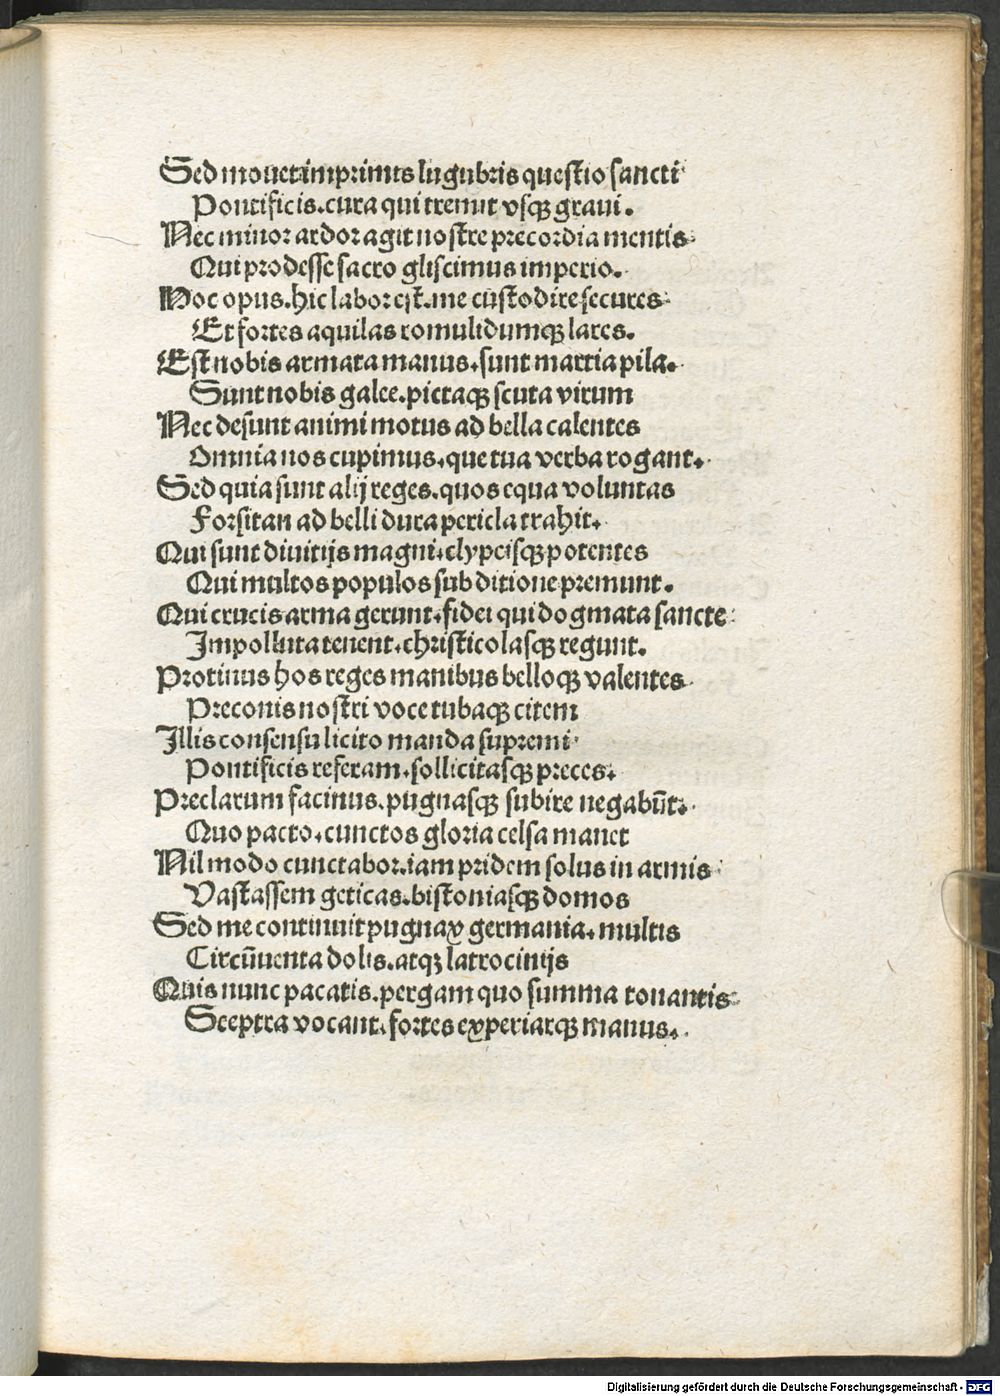 Sed mouet imprimis lugubris questio sancti
Pontificis.cura qui tremit vsqꝫ graui.
Nec minor ardor agit nostre precordia mentis
Qui prodesse sacro gliscimus imperio.
Hoc opus.hic labor est.me custodire secures
Et fortes aquilas romulidumqꝫ lares.
Est nobis armata manus.sunt martia pila.
Sunt nobis galee.pictaqꝫ scuta virum
Nec desunt animi motus ad bella calentes
Omnia nos cupimus.que tua verba rogant.
Sed quia sunt alij reges.quos equa voluntas
Forsitan ad belli dura pericla trahit.
Qui sunt diuitijs magni.clypeisqꝫ potentes
Qui multos populos sub ditione premunt.
Qui crucis arma gerunt.fidei qui dogmata sancte
Impolluta tenent.christicolasqꝫ regunt.
Protinus hos reges manibus belloqꝫ valentes
Preconis nostri voce tubaqꝫ citem
Illis consensu licito manda supremi
Pontificis referam.sollicitasqꝫ preces.
Preclarum facinus.pugnasqꝫ subire negabūt.
Quo pacto.cunctos gloria celsa manet
Nil modo cunctabor.iam pridem solus in armis
Vastassem geticas.bistoniasqꝫ domos
Sed me continuit pugnax germania.multis
Circūuenta dolis.atqꝫ latrocinijs
Quis nunc pacatis.pergam quo summa tonantis
Sceptra vocant.fortes experiarqꝫ manus.
Digitalisierung gefördert durch die Deutsche Forschungsgemeinschaft - DFG